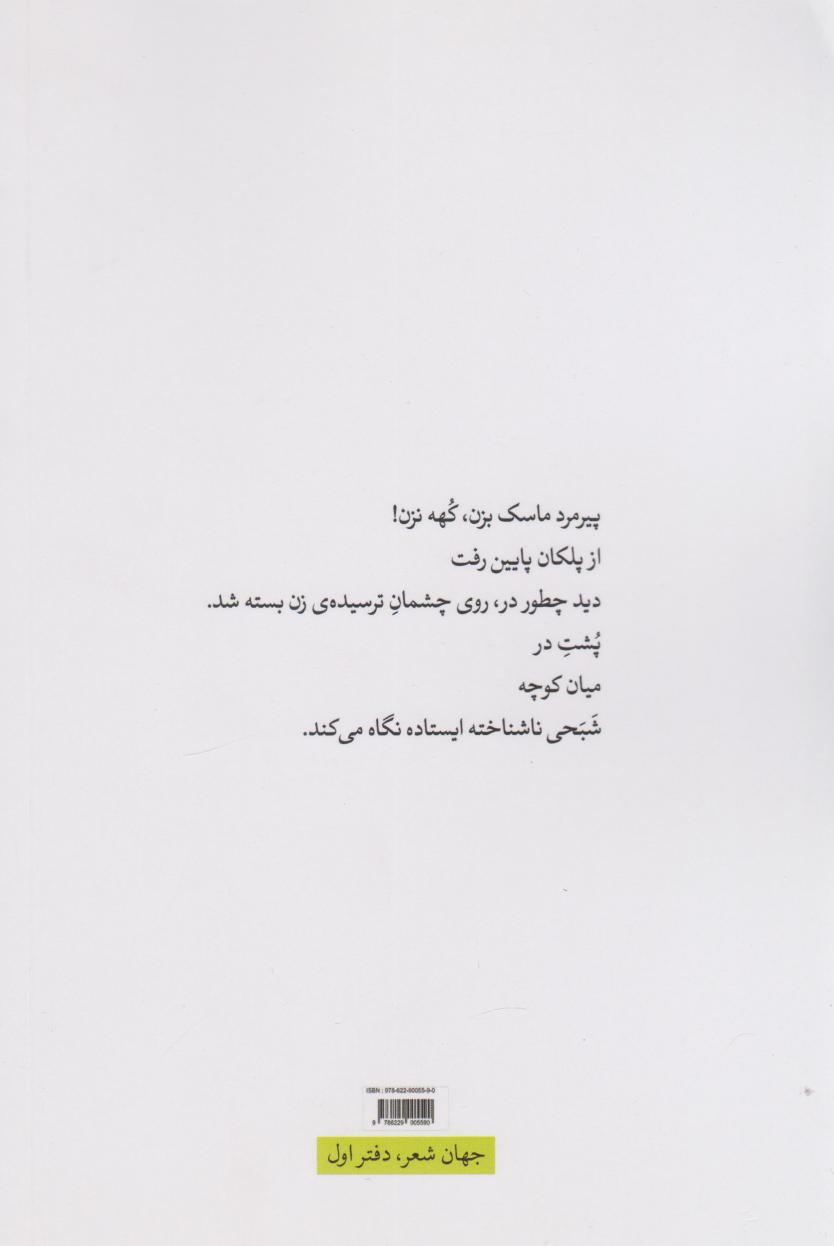 پیرمرد ماسک بزن، کُهه نزن!
از پلکان پایین رفت
دید چطور در، روی چشمانِ ترسیده‌ی زن بسته شد.
پُشتِ در
میان کوچه
شَبَحی ناشناخته ایستاده نگاه می‌کند.
ISBN : 978-622-90055-9-0
9 786229 005590
جهان شعر، دفتر اول